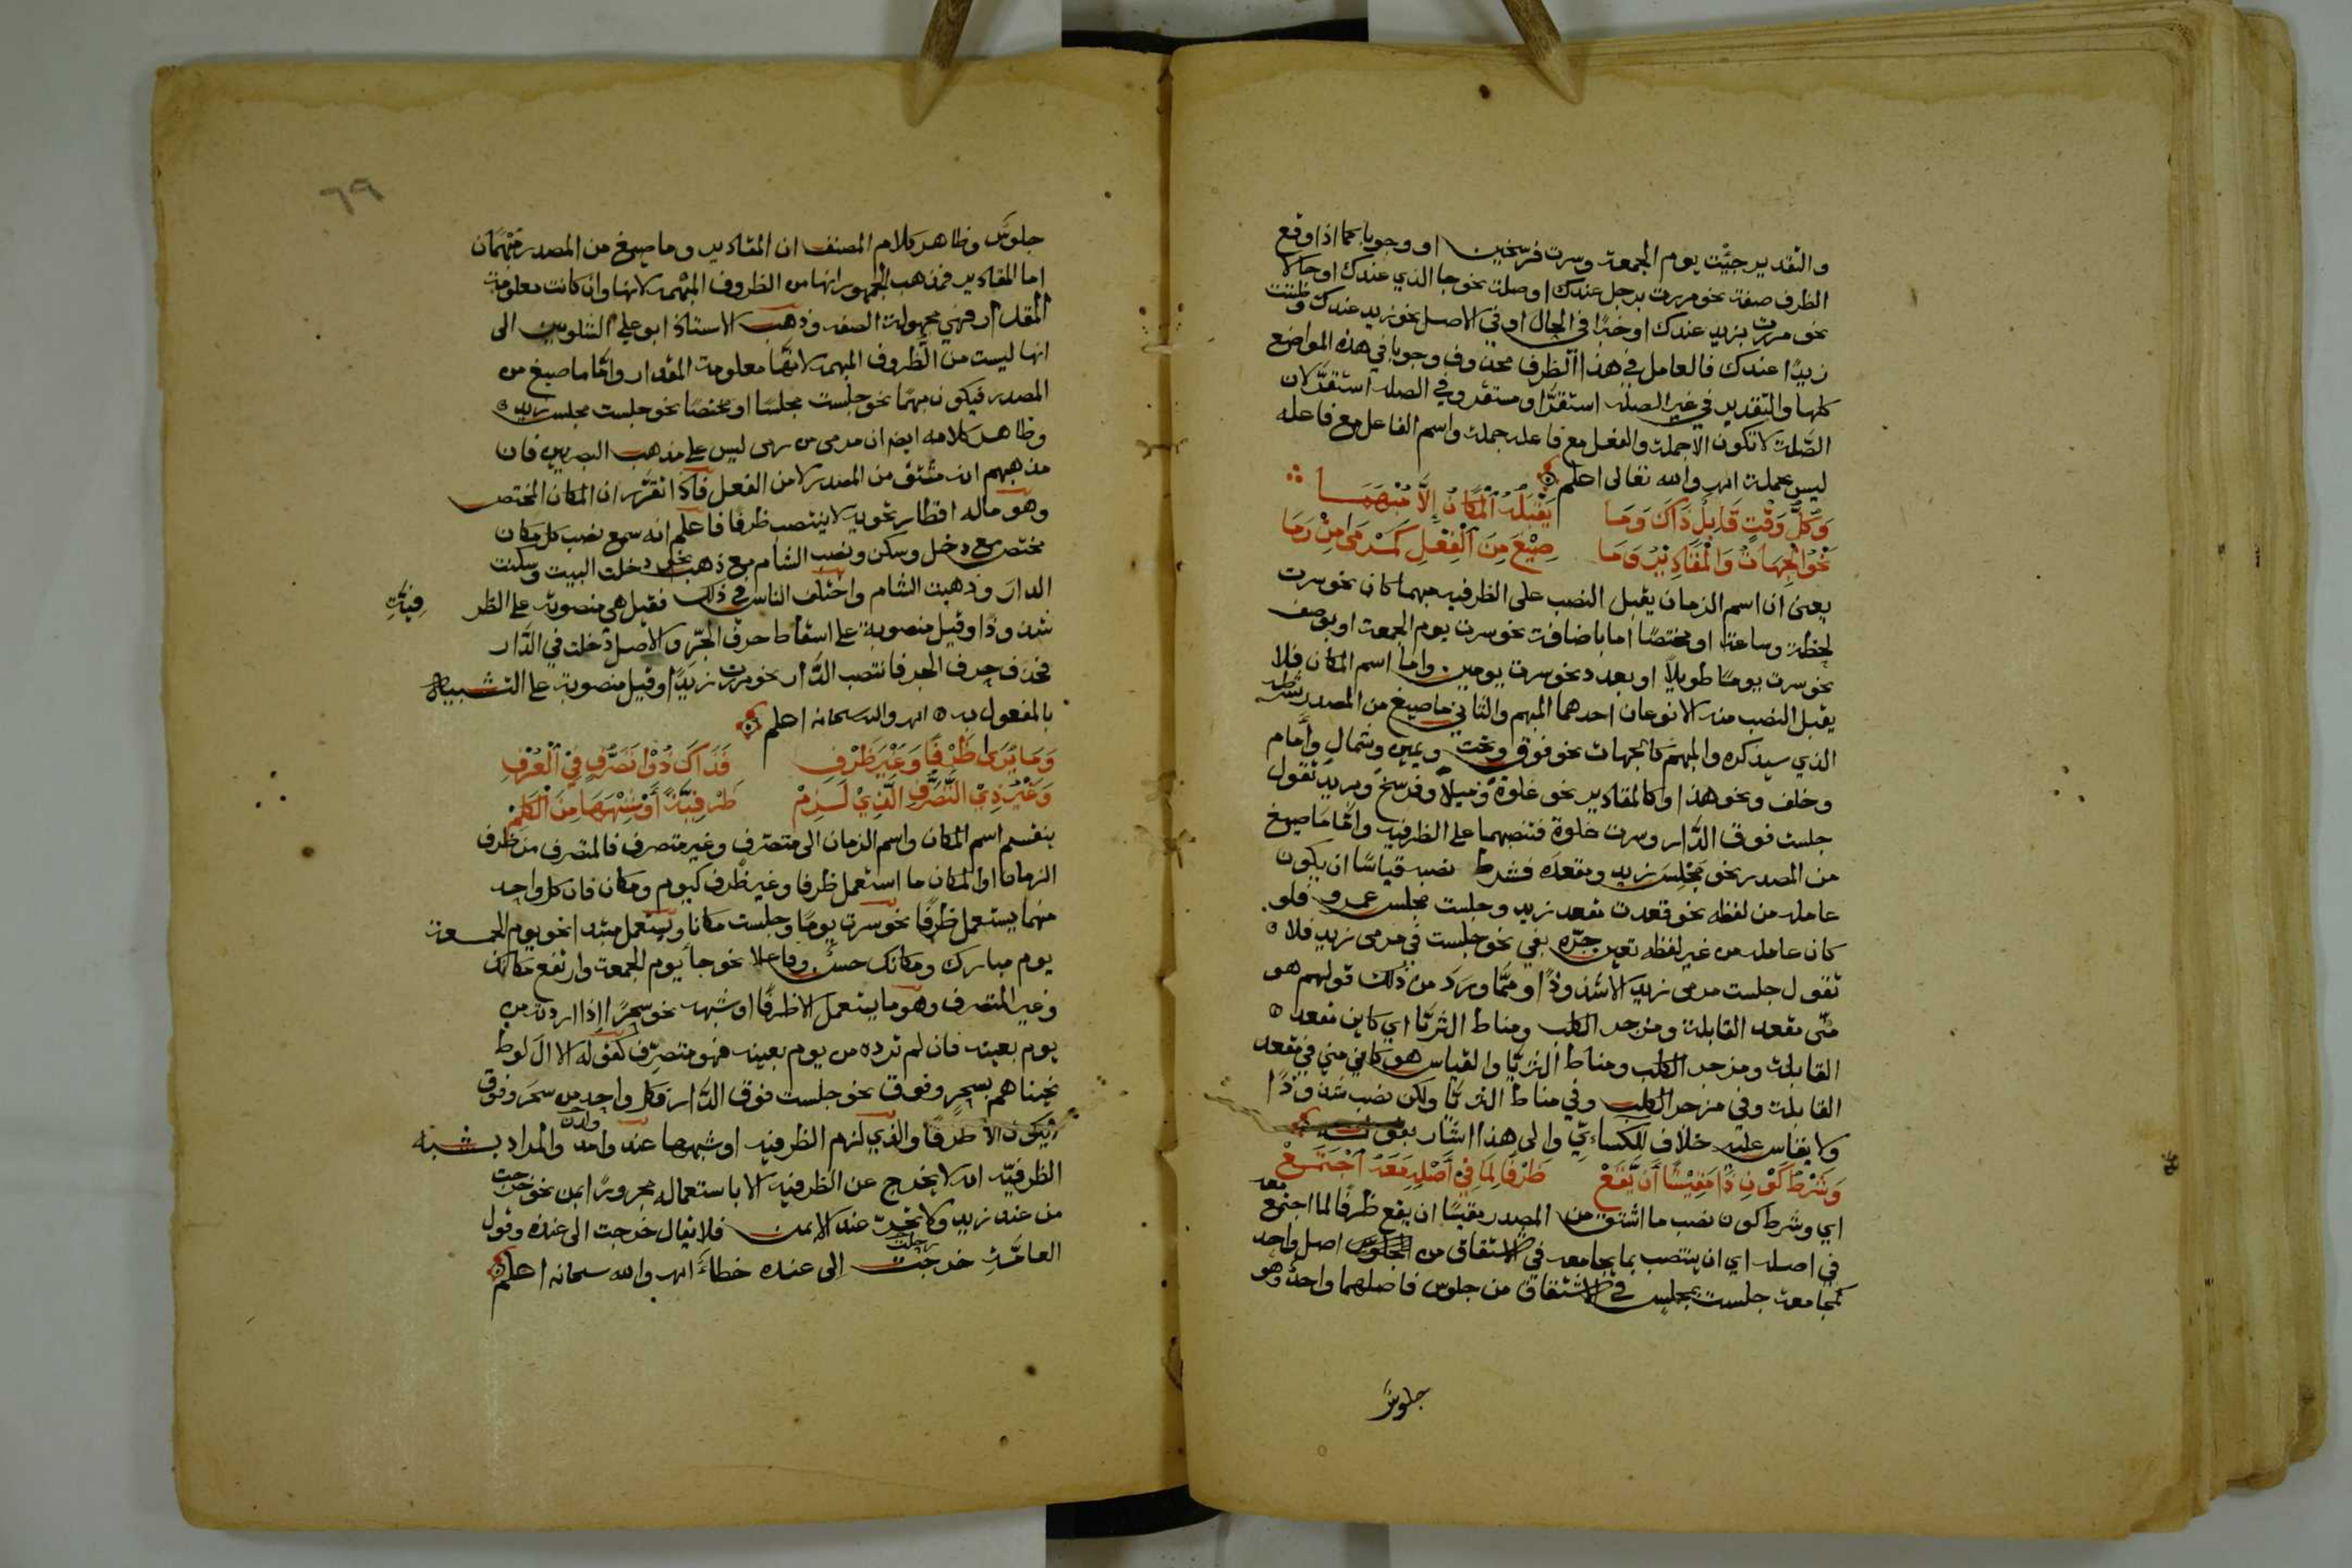 والتقدير جيت يوم الجمعة وسرت فرسخين او وجوبا كما اذا وقع
الظرف صفة نحو مررت برجل عندك او صلة نحو جا الذي عندك او حالا
نحو مررت بزيد عندك او خبرًا في الحال او في الاصل نحو زيد عندك وظننت
زيدًا عندك فالعامل في هذا الظرف محذوف وجوبا في هذه المواضع
كلها والتقدير في غير الصلة استقرَّ او مستقر وفي الصلة استقرَّ لان
الصَّلة لا تكون الا جملة والفعل مع فاعله جملة واسم الفاعل مع فاعله
ليس بجملة انهـ والله تعالى اعلم
وَكُلُّ وَقْتٍ قَابِلٌ ذَاكَ وَمَا يَقْبَلُهُ الْمَكَانُ إِلَّا مُبْهَمَا
نَحْوُ الْجِهَاتِ وَالْمَقَادِيْرِ وَمَا صِيْغَ مِنَ الْفِعْلِ كَمَرْمَى مِنْ رَمَا
يعني ان اسم الزمان يقبل النصب على الظرفيه مبهما كان نحو سرت
لحظة وساعة او مختصًا اما باضافة نحو سرت يوم الجمعة او بوصف
نحو سرت يومًا طويلًا او بعدد نحو سرت يومين واما اسم المكان فلا
يقبل النصب منه الا نوعان احدهما المبهم والثاني ما صيغ من المصدر بشرطه
الذي سيذكره والمبهم كالجهات نحو فوق وتحت ويمين وشمال وأمام
وخلف ونحو هذا وكالمقادير نحو غلوة وميلًا وفرسخ وبريد تقول
جلست فوق الدَّار وسرت غلوة فتنصبهما على الظرفيه وامَّا مَا صيغ
من المصدر نحو مَجْلِسَ زيد ومقعده فشرط نصبه قياسًا ان يكون
عامله من لفظه نحو قعدت مقعد زيد وجلست مجلس عمرو فلو
كان عامله من غير لفظه تعين جرّه بفي نحو جلست في مرمى زيد فلا
تقول جلست مرمى زيد الا شذوذًا ومما ورد من ذلك قولهم هو
منّى مقعد القابلة ومزجر الكلب ومناط الثريّا اي كاين مقعد
القابلة ومزجر الكلب ومناط الثريّا والقياس هو كاين مني في مقعد
القابلة وفي مزجر الكلب وفي مناط الثريّا ولكن نصب شذوذًا
ولا يقاس عليه خلاف للكساءي والى هذا اشار بقوله
وَشَرْطُ كَوْنِ ذَا مَقِيْسًا أَنْ يَّقَعْ ظَرْفًا لِمَا فِيْ أَصْلِهِ مَعَهُ اجْتَمَعْ
اي وشرط كون نصب ما اشتق من المصدر مقيسًا ان يقع ظرفًا لما اجتمع معه
في اصله اي ان ينتصب بما يجامعه في الاشتقاق من اصل واحد
كمجامعة جلست بمجلس في الاشتقاق من جلوس فاصلهما واحد وهو
جلوسٌ
٦٩
جلوسٌ وظاهر كلام المصنف ان المقادير وما صيغ من المصدر مبهمان
اما المقادير فمذهب الجمهور انها من الظروف المبهمه لانها وان كانت معلومة
المقدار فهي مجهولة الصفه وذهب الاستاذ ابو علي الشلوبين الى
انها ليست من الظروف المبهمه لانّها معلومة المقدار وامَّا ما صيغ من
المصدر فيكون مبهمًا نحو جلست مجلسًا او مختصًا نحو جلست مجلس زيد
وظاهر كلامه ايضا ان مرمى من رمى ليس على مذهب البصريين فان
مذهبهم انه مشتق من المصدر لا من الفعل فاذا تقرّر ان المكان المختص
وهو ماله اقطار تحويه لا ينتصب ظرفًا فاعلم انه سمع نصب كل مكان
مختص مع دخل وسكن ونصب الشام مع ذهب نحو دخلت البيت وسكنت
الدارَ وذهبت الشام واختلف الناس في ذلك فقيل هي منصوبة على الظر
فيةِ
شذوذًا وقيل منصوبة على اسقاط حرف الجرّ والاصل دخلت في الدَّار
فحذف حرف الجر فانتصب الدَّار نحو مررت زيدًا وقيل منصوبة على التشبيه
بالمفعول به انهـ والله سبحانه اعلم
وَمَا يُرَى ظَرْفًا وَغَيْرَ ظَرْفِ فَذَاكَ ذُوْ تَصَرُّفٍ فِيْ الْعُرْفِ
وَغَيْرُ ذِيْ التَّصَرُّفِ الَّذِيْ لَزِمْ ظَرْفِيَّةً أَوْ شِبْهَهَا مِنَ الْكَلِمْ
ينقسم اسم المكان واسم الزمان الى متصرف وغير متصرف فالمتصرف من ظرف
الزمان او المكان ما استعمل ظرفا وغير ظرف كيوم ومكان فان كل واحد
منهما يستعمل ظرفًا نحو سرت يومًا وجلست مكانا ويستعمل مبتدا نحو يوم الجمعة
يوم مبارك ومكانك حسنٌ وفاعلا نحو جاء يوم الجمعة وارتفع مكانك
وغير المتصرف وهو ما يستعمل الا ظرفًا او شبهه نحو سحرًا اذا اردته من
يوم بعينه فان لم ترده من يوم بعينه فهو متصرّف كقوله الا ال لوط
نجيناهم بسحر وفوق نحو جلست فوق الدَّار فكل واحد من سحر وفوق
لا يكون الا ظرفًا والذي لزم الظرفيه او شبهها عند ولدن والمراد بشبه
الظرفيّه انه لا يخرج عن الظرفيه الا باستعماله مجرورًا بمن نحو خرجت
من عند زيد ولا تجر عند الا بمن فلا يقال خرجت الى عنده وقول
العامَّةِ خرجت الى عنده خطاءٌ انهـ والله سبحانه اعلم